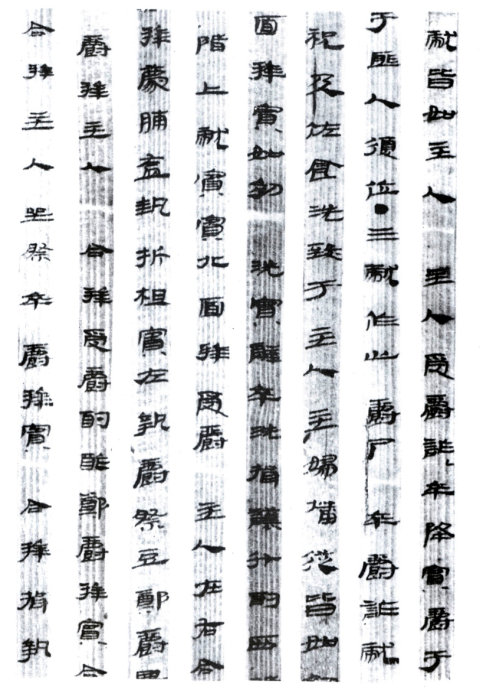 獻皆如主人 主人受爵酢卒降實爵于
于匪人復位●三獻作止 爵尸卒爵酢獻
祝及佐食洗致于主人主婦燔從皆如
面拜賓如初 洗賓辭卒洗揖讓升酌西
階上獻賓賓北面拜受爵 主人在右合
拜薦脯醢執折柤賓左執爵祭豆鄭爵興
爵拜主人 合拜受爵酌酢鄭爵拜賓合
合拜主人坐祭卒爵拜賓 合拜揖執